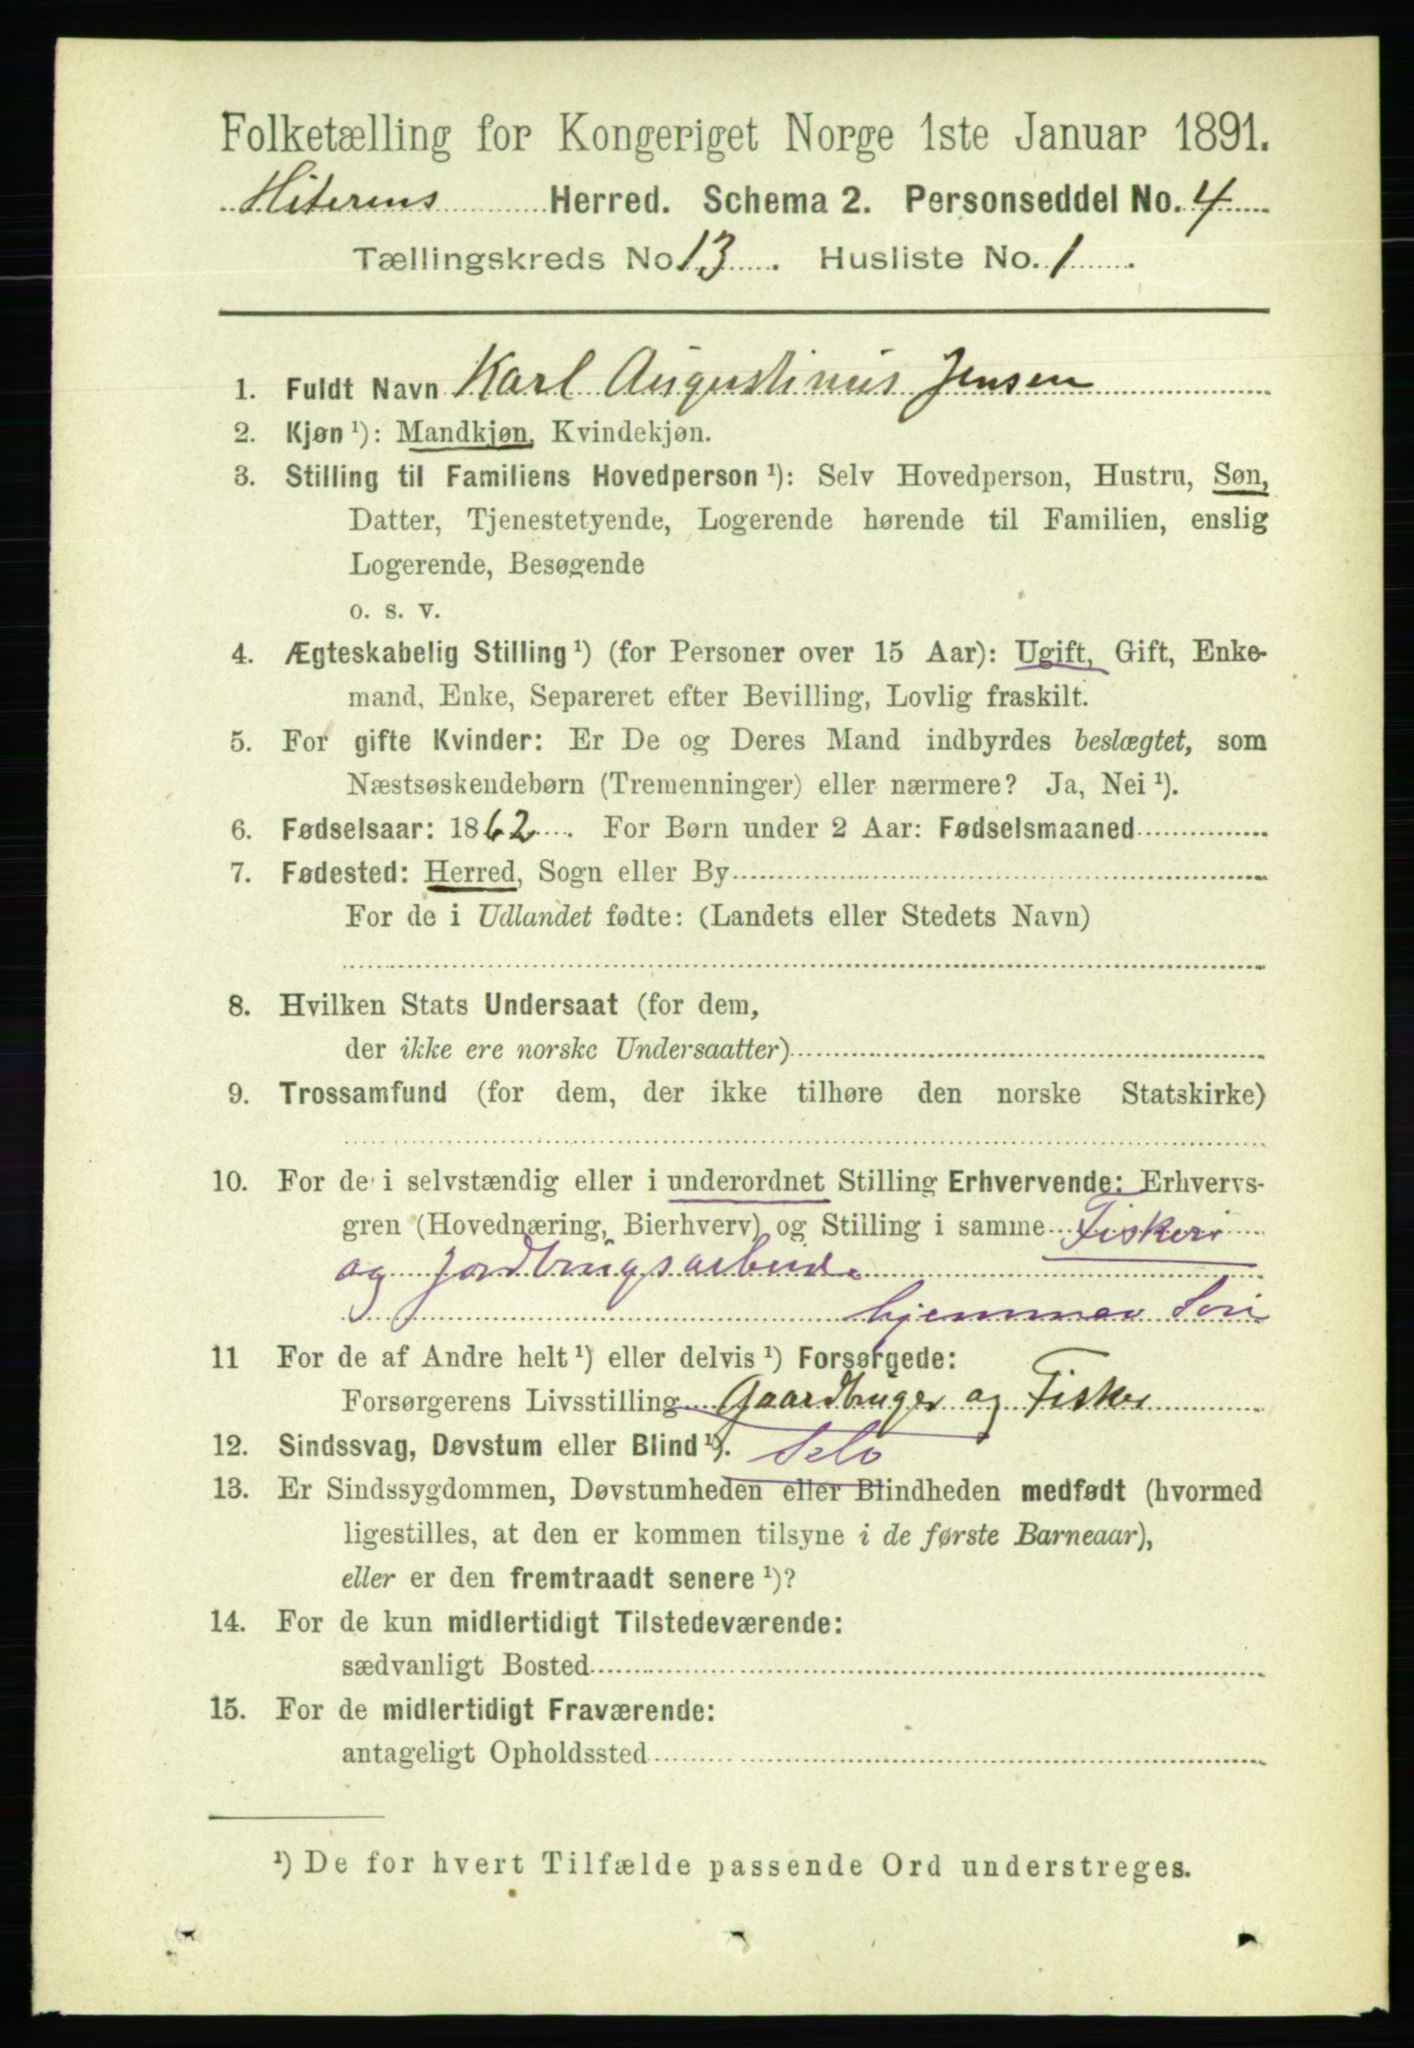 Folketælling for Kongeriget Norge 1ste Januar 1891.
Hiterens Herred. Schema 2. Personseddel No. 4
Tællingskreds No 13. Husliste No. 1.
1. Fuldt Navn Karl Augustinius Jensen
2. Kjøn ¹): Mandkjøn, Kvindekjøn.
3. Stilling til Familiens Hovedperson ¹): Selv Hovedperson, Hustru, Søn,
Datter, Tjenestetyende, Logerende hørende til Familien, enslig
Logerende, Besøgende
o. s. v.
4. Ægteskabelig Stilling ¹) (for Personer over 15 Aar): Ugift, Gift, Enke-
mand, Enke, Separeret efter Bevilling, Lovlig fraskilt.
5. For gifte Kvinder: Er De og Deres Mand indbyrdes beslægtet, som
Næstsøskendebørn (Tremenninger) eller nærmere? Ja, Nei ¹).
6. Fødselsaar: 1862. For Børn under 2 Aar: Fødselsmaaned
7. Fødested: Herred, Sogn eller By
For de i Udlandet fødte: (Landets eller Stedets Navn)
8. Hvilken Stats Undersaat (for dem,
der ikke ere norske Undersaatter)
9. Trossamfund (for dem, der ikke tilhøre den norske Statskirke)
10. For de i selvstændig eller i underordnet Stilling Erhvervende: Erhvervs-
gren (Hovednæring, Bierhverv) og Stilling i samme Fiskeri
og Jordbrugsarbeide
hjemmev Søn
11 For de af Andre helt ¹) eller delvis ¹) Forsørgede:
Forsørgerens Livsstilling Gaardbruger og Fisker
12. Sindssvag, Døvstum eller Blind ¹). Selv
13. Er Sindssygdommen, Døvstumheden eller Blindheden medfødt (hvormed
ligestilles, at den er kommen tilsyne i de første Barneaar),
eller er den fremtraadt senere ¹)?
14. For de kun midlertidigt Tilstedeværende:
sædvanligt Bosted
15. For de midlertidigt Fraværende:
antageligt Opholdssted
¹) De for hvert Tilfælde passende Ord understreges.